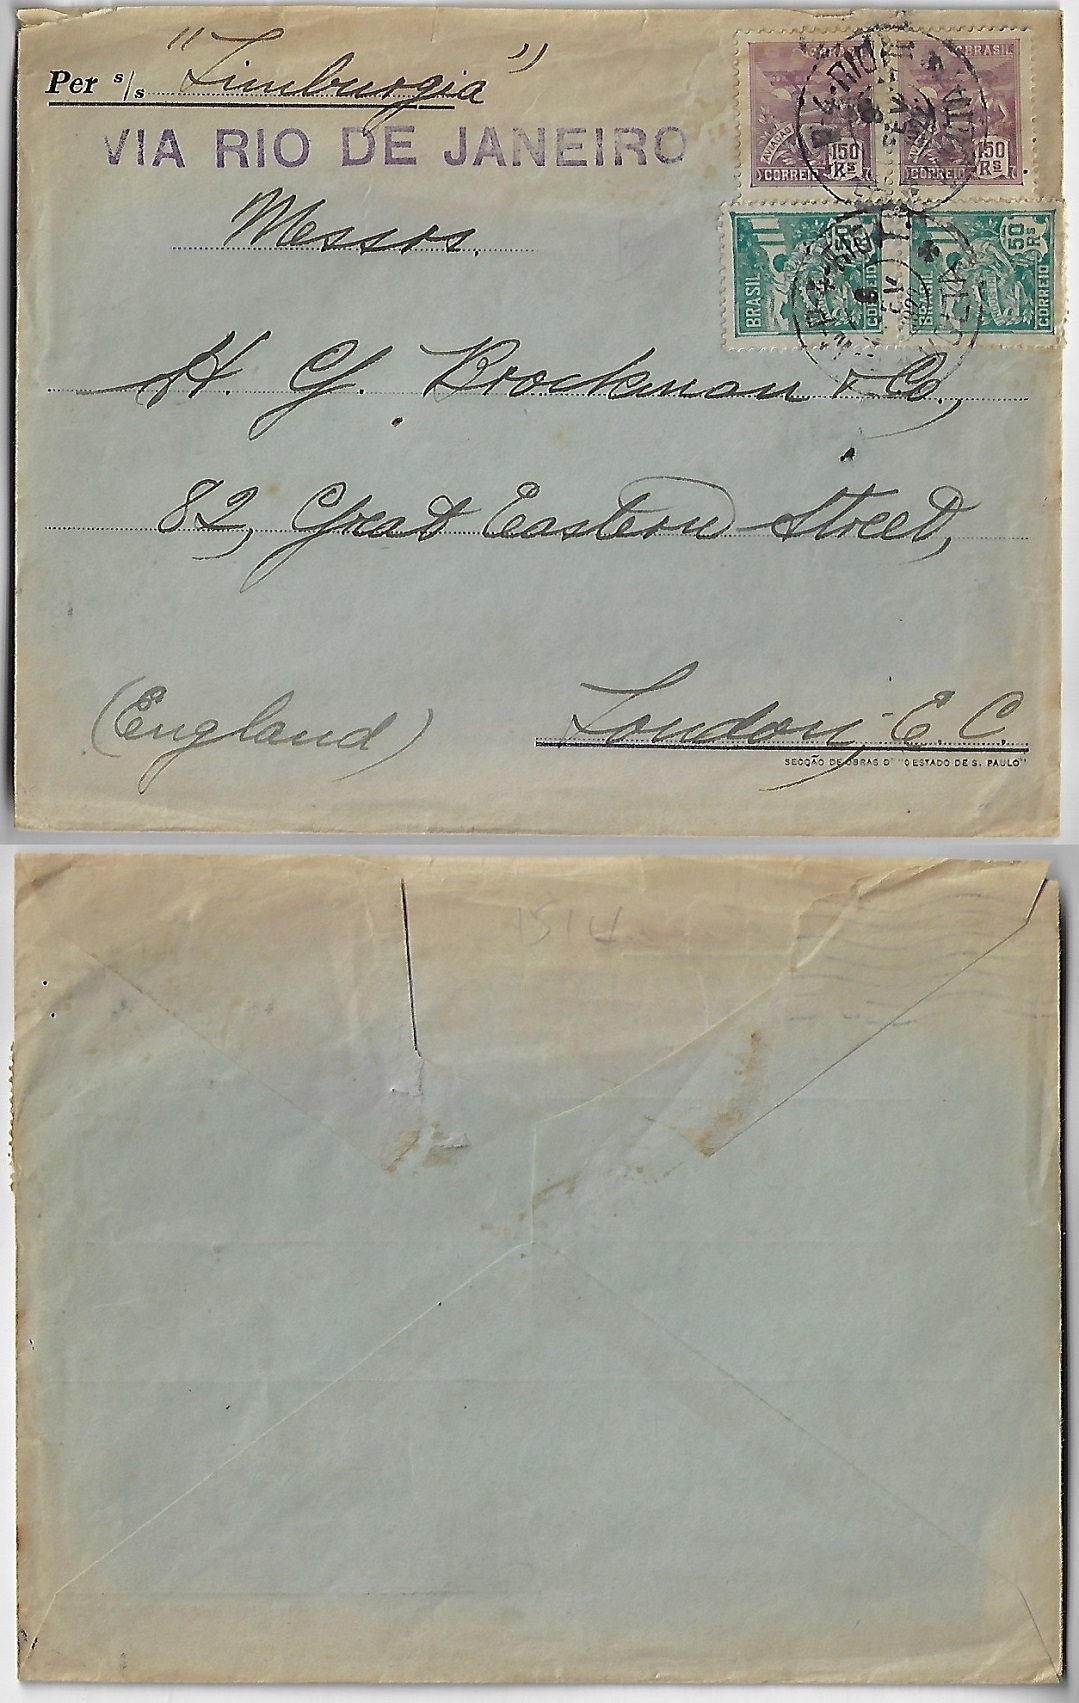 Per s/s "Limburgia"
VIA RIO DE JANEIRO
Messrs.
H. G. Brockman & Co.,
82, Great Eastern Street,
(England) London, E. C.
SECÇÃO DE OBRAS D' "O ESTADO DE S. PAULO"
BRASIL
BRASIL
AVIAÇÃO
150 Rs
150 Rs
CORREIO
CORREIO
BRASIL
50 Rs
CORREIO
BRASIL
50 Rs
CORREIO
1514